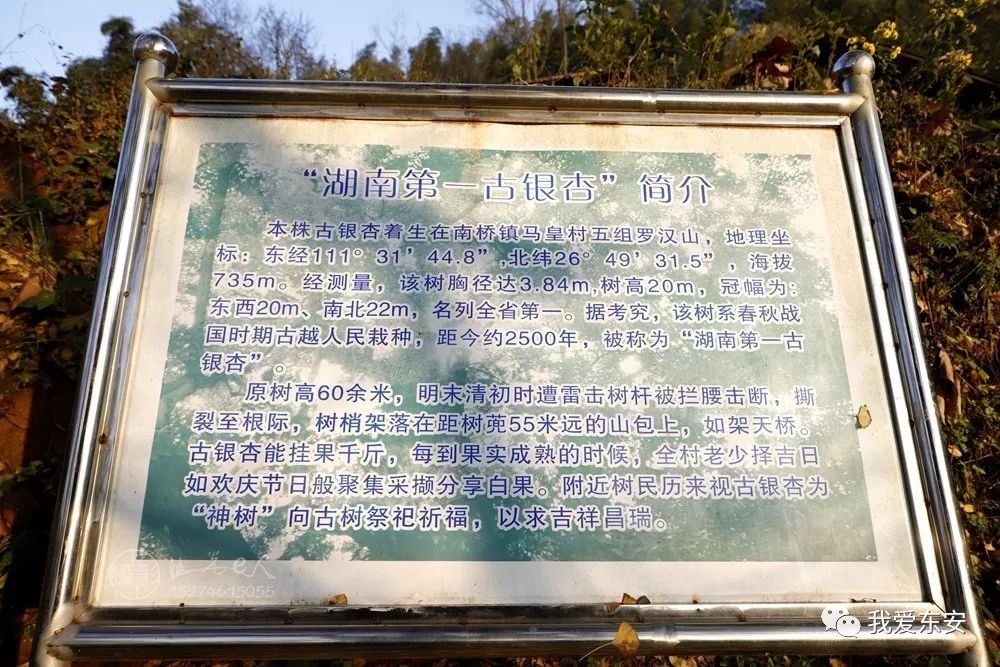 “湖南第一古银杏”简介
本株古银杏着生在南桥镇马皇村五组罗汉山，地理坐
标：东经111°31’44.8”北纬26°49’31.5”，海拔
735m。经测量，该树胸径达3.84m,树高20m，冠幅为:
东西20m、南北22m，名列全省第一。据考究，该树系春秋战
国时期古越人民栽种，距今约2500年，被称为“湖南第一古
银杏”。
原树高60余米，明末清初时遭雷击树杆被拦腰击断，撕
裂至根际，树梢架落在距树蔸55米远的山包上，如架天桥。
古银杏能挂果千斤，每到果实成熟的时候，全村老少择吉日
如欢庆节日般聚集采撷分享白果。附近村民历来视古银杏为
“神树”向古树祭祀祈福，以求吉祥昌瑞。
15274615055
我爱东安